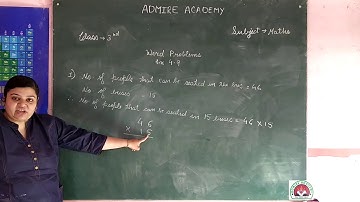 ADMIRE ACADEMY
Class → 3rd
Subject → Maths
Word Problems
Ex 4.9
1) No. of people that can be seated in the bus = 46
No. of buses = 15
∴ No. of people that can be seated in 15 buses = 46 × 15
4 6
× 1 5